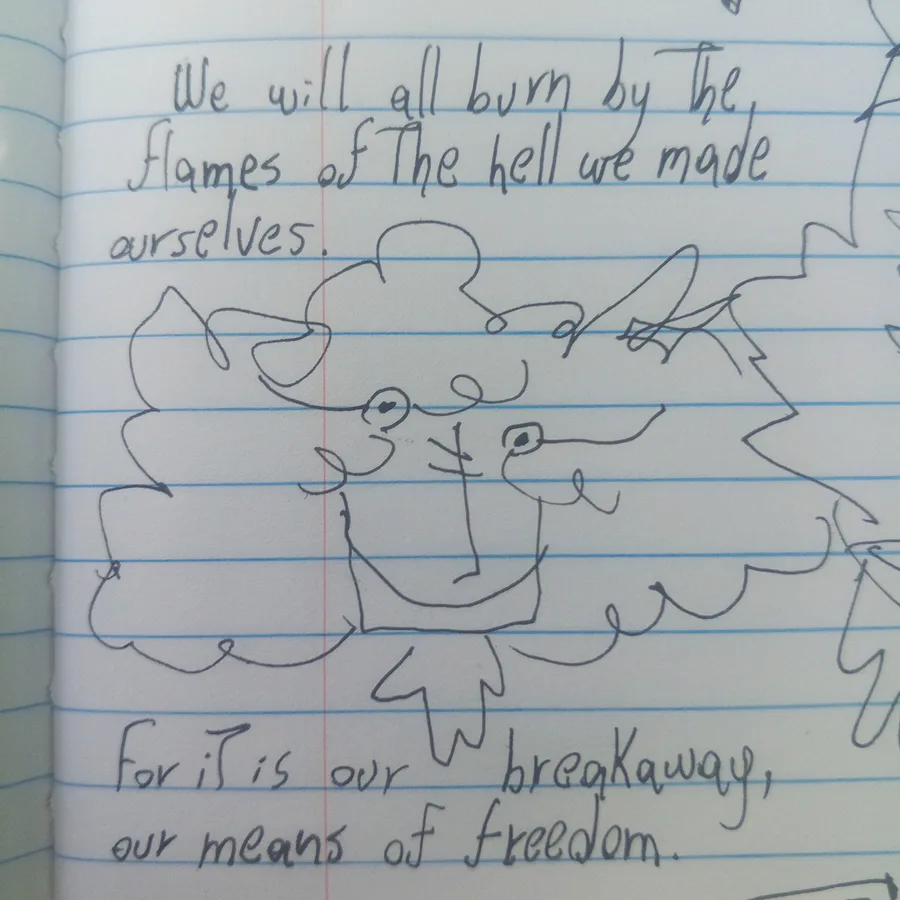 We will all burn by The,
flames of The hell we made
ourselves.
For iT is our breakaway,
our means of freedom.